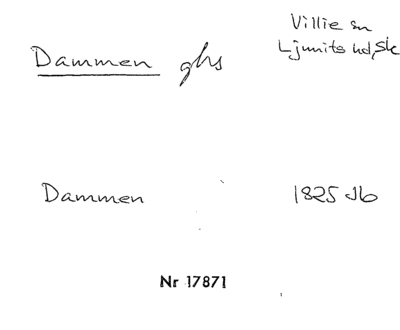 Villie sn
Dammen ghs Ljunits hd, Sk
Dammen 1825 Jb
Nr 17871